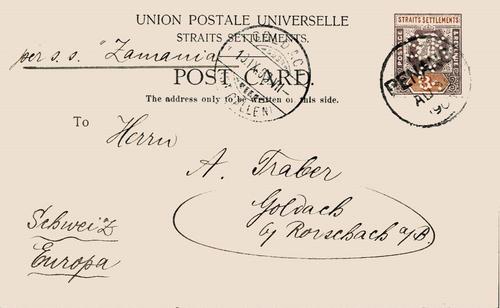 UNION POSTALE UNIVERSELLE
STRAITS SETTLEMENTS.
per s.s. "Zamania
POST CARD.
The address only to be written on this side.
STRAITS SETTLEMENTS
POSTAGE
PENANG
AU
190
GOLDACH
(ST. GALLEN)
To
Herrn
A. Traber
Goldach
b/ Rorschach a/B.
Schweiz
Europa